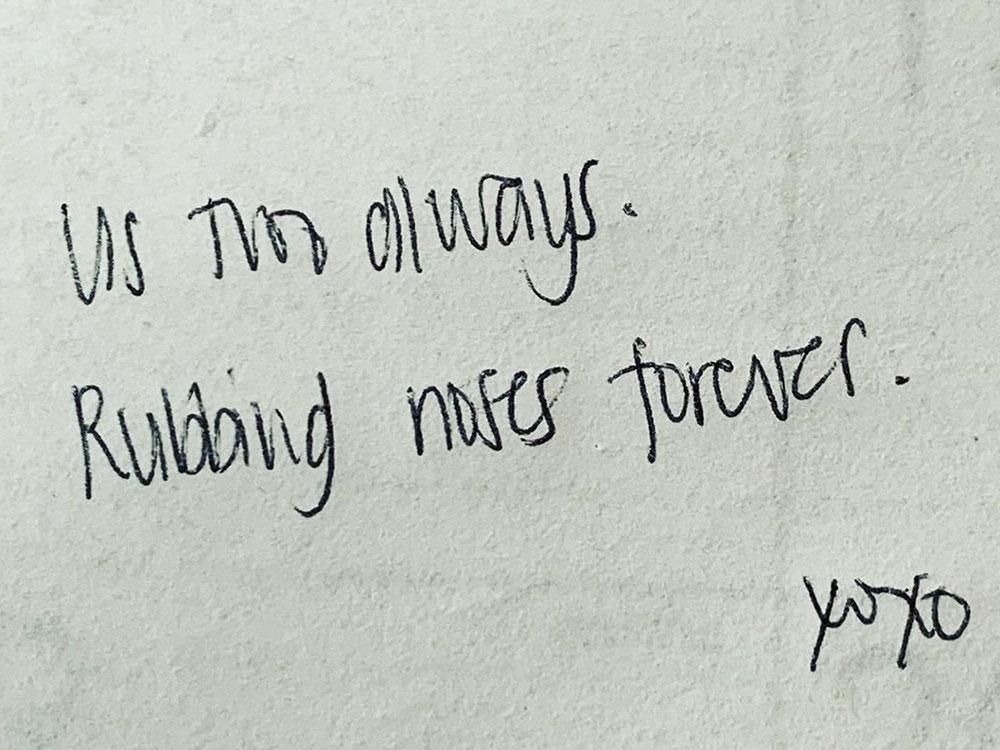 Us two always.
Rubbing noses forever.
xoxo